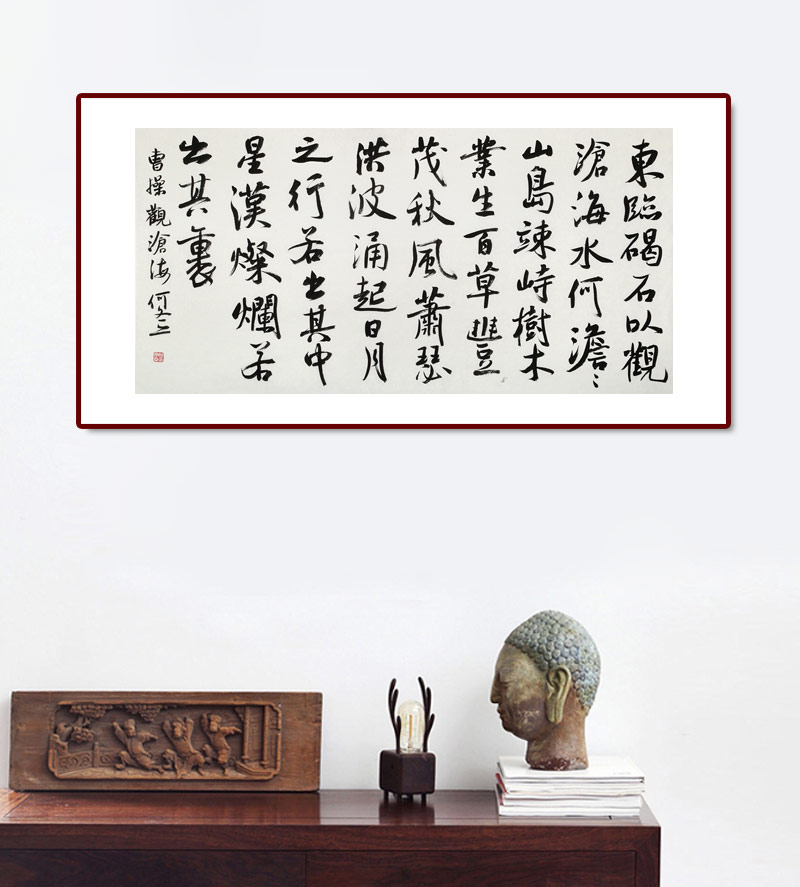 東臨碣石以觀
滄海水何澹〻
山島竦峙樹木
業生百草豐
茂秋風蕭瑟
洪波涌起日月
之行若出其中
星漢燦爛若
出其裏
曹操觀滄海 何